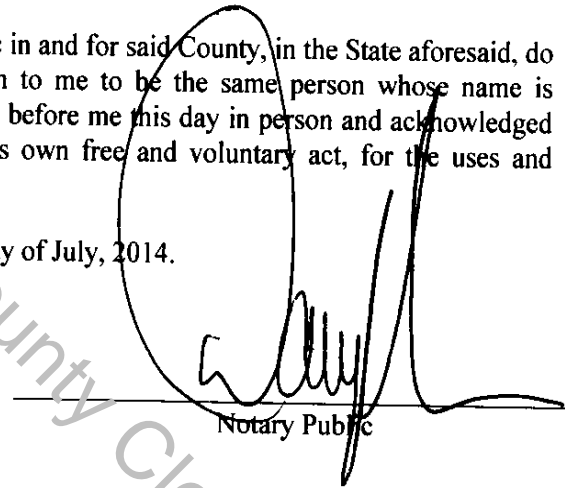 in and for said County, in the State aforesaid, do
to me to be the same person whose name is
before me this day in person and acknowledged
own free and voluntary act, for the uses and
of July, 2014.
Notary Public